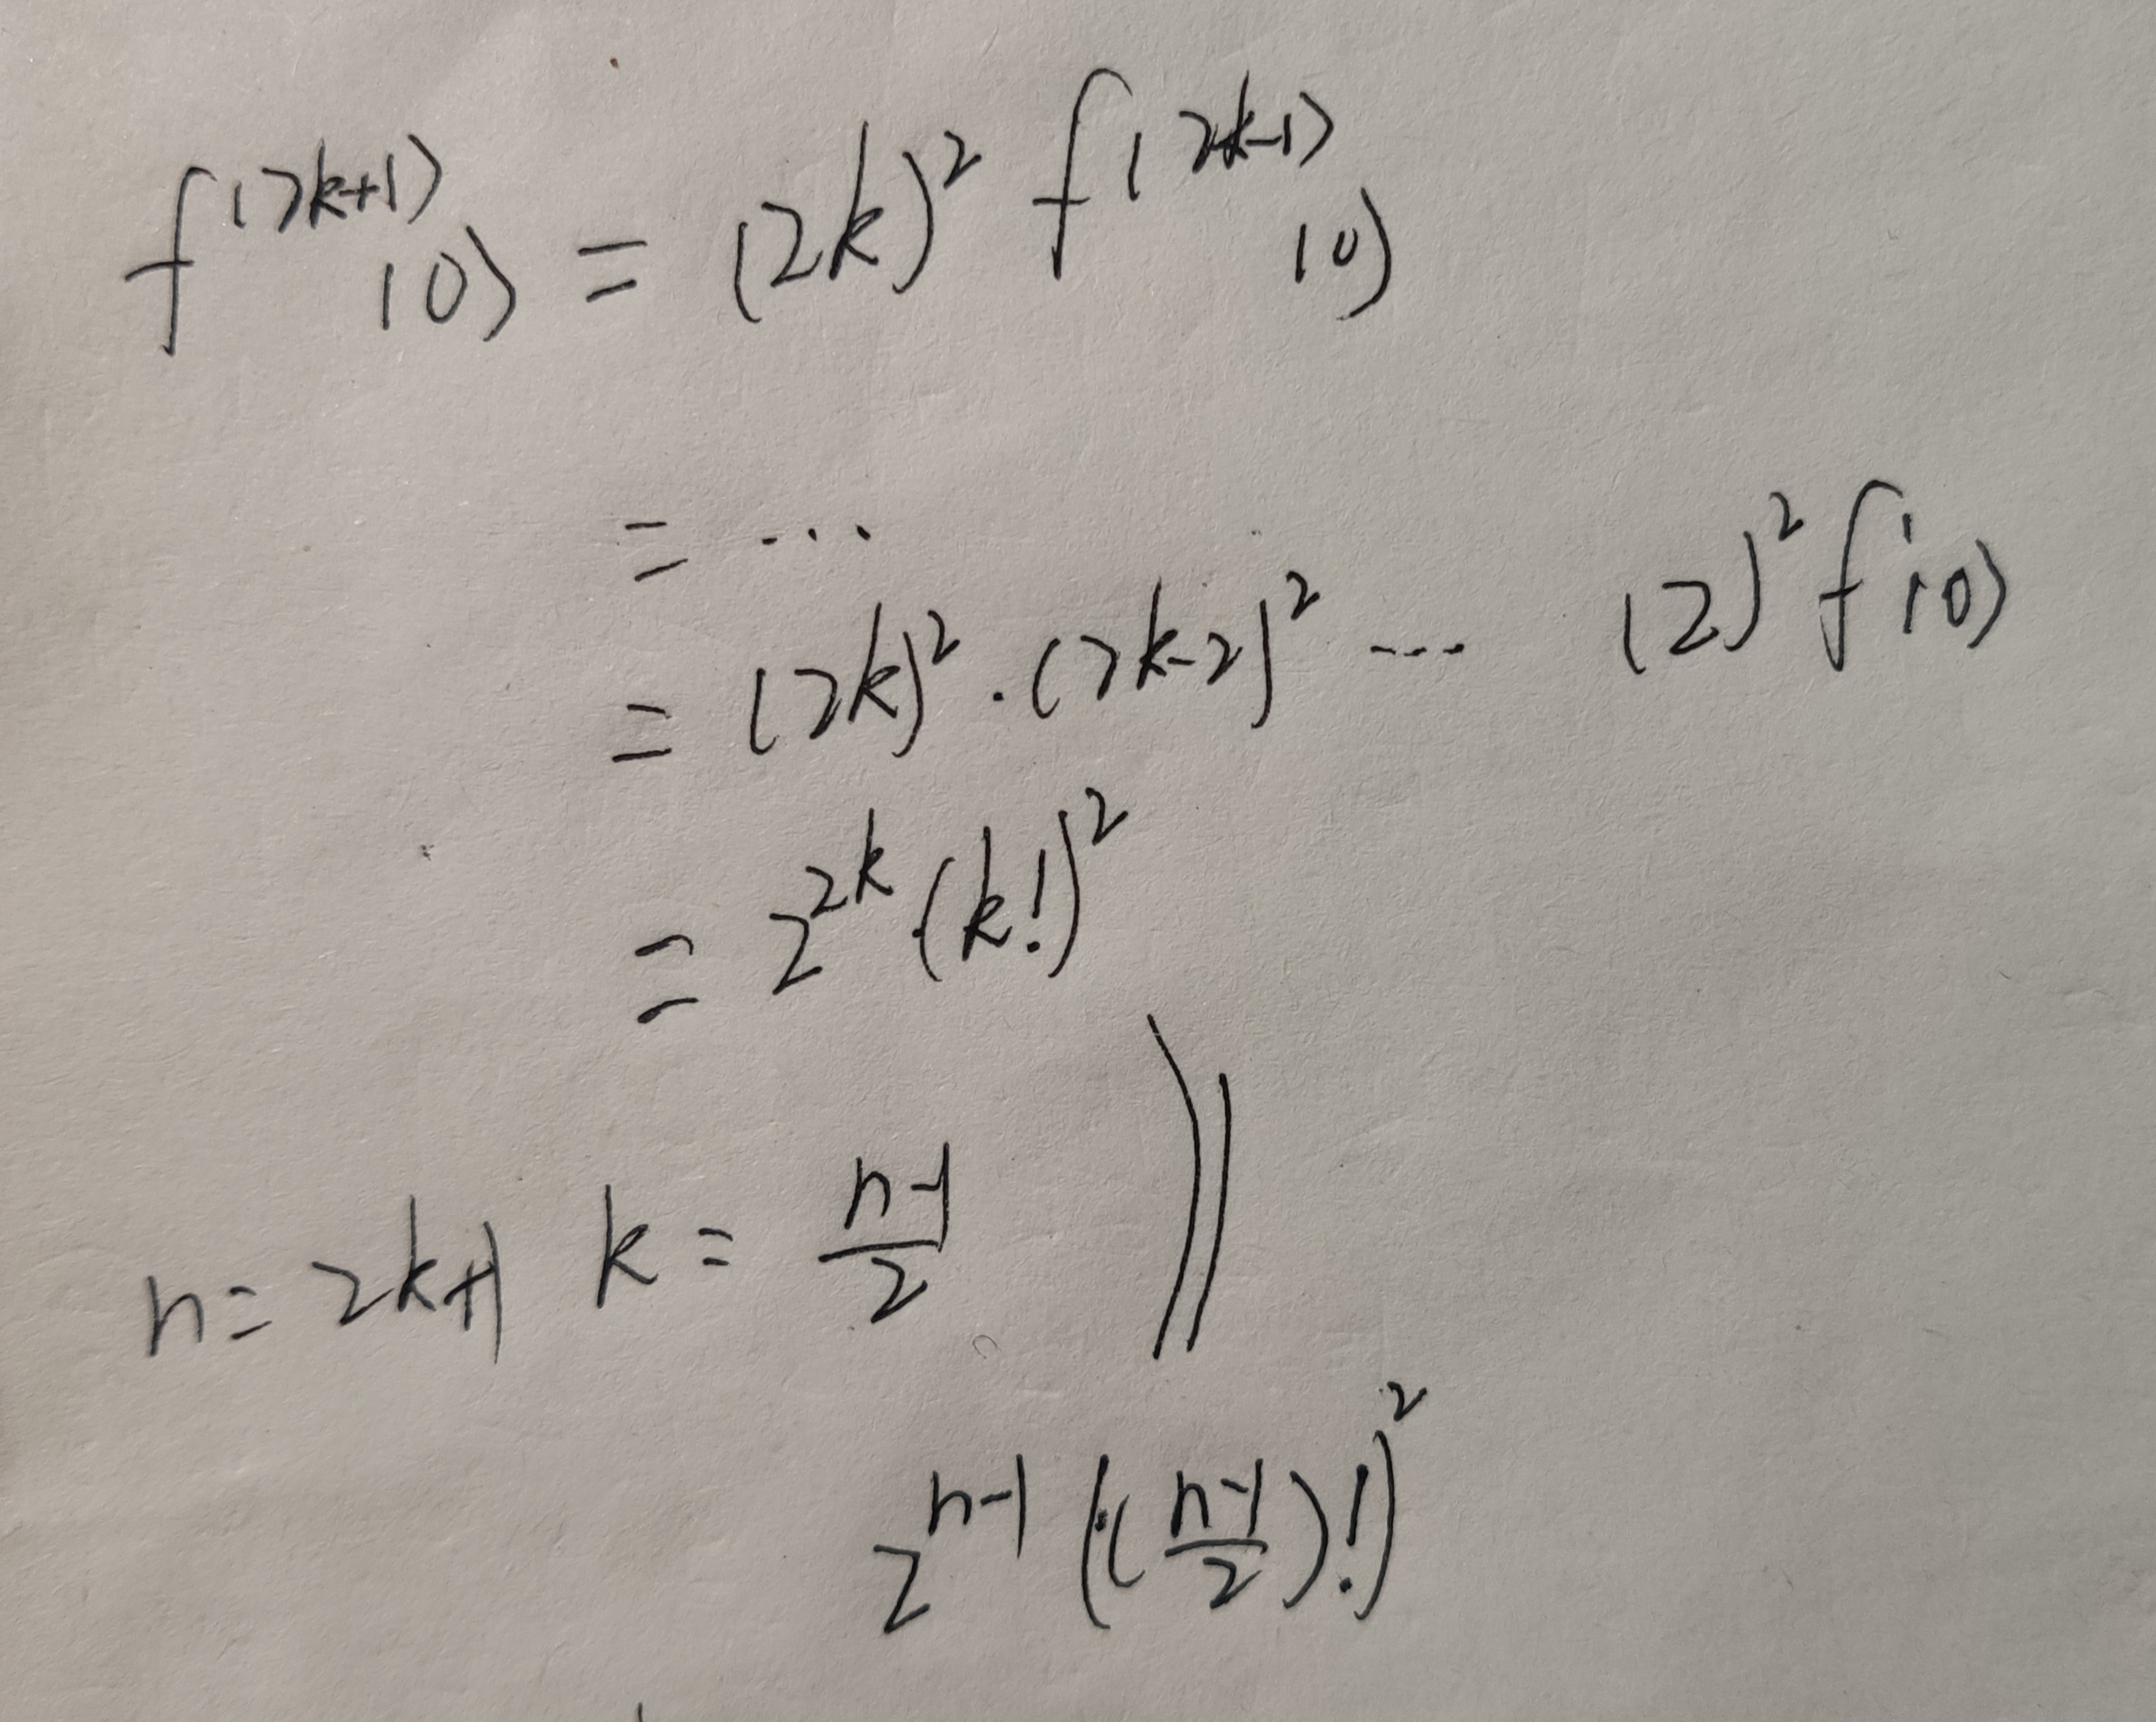 f^{(2k+1)}(0) = (2k)^2 f^{(2k-1)}(0)
= ...
= (2k)^2 · (2k-2)^2 ... (2)^2 f'(0)
= 2^{2k} · (k!)^2
n = 2k+1 k = \frac{n-1}{2}
2^{n-1} ((\frac{n-1}{2})!)^2